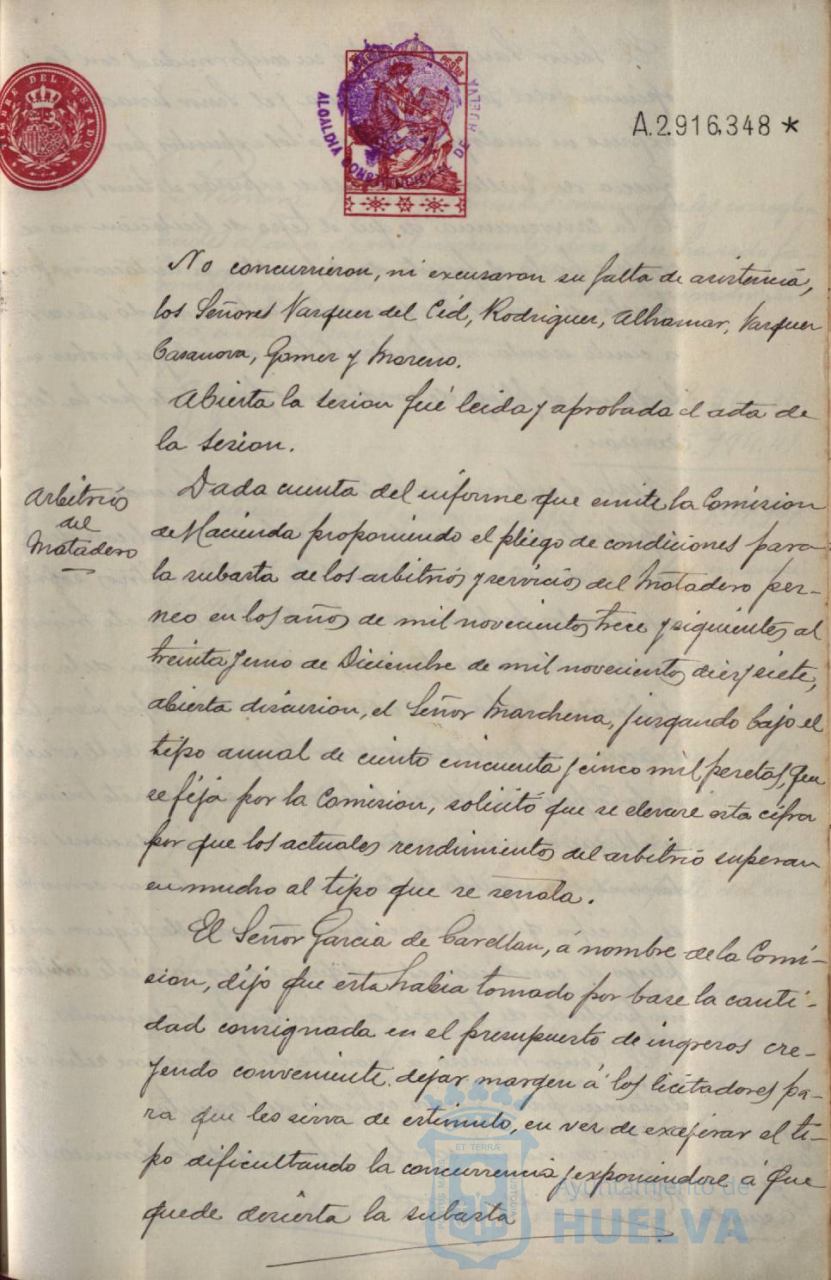 TIMBRE DEL ESTADO
ALCALDIA CONSTITUCIONAL DE HUELVA
A.2.916,348 *
No concurrieron, ni excusaron su falta de asistencia,
los Señores Vazquez del Cid, Rodriguez, Alhamar, Vazquez
Casanova, Gomez y Moreno.
Abierta la sesion fué leida y aprobada el acta de
la sesion.
Arbitrios
del
Matadero
Dada cuenta del informe que emite la Comision
de Hacienda proponiendo el pliego de condiciones para
la subasta de los arbitrios y servicios del Matadero per-
neo en los años de mil novecientos trece y siguientes al
treinta y uno de Diciembre de mil novecientos diez y siete,
abierta discusion, el Señor Marchena, juzgando bajo el
tipo anual de ciento cincuenta y cinco mil pesetas, que
se fija por la Comision, solicitó que se elevase esta cifra
por que los actuales rendimientos del arbitrio superan
en mucho al tipo que se señala.
El Señor Garcia de Castellan, á nombre de la Comi-
sion, dijo que esta habia tomado por base la canti-
dad consignada en el presupuesto de ingresos cre-
yendo conveniente dejar margen á los licitadores pa-
ra que les sirva de estimulo, en vez de exajerar el ti-
po dificultando la concurrencia y exponiendose á que
quede desierta la subasta
Ayuntamiento de
HUELVA